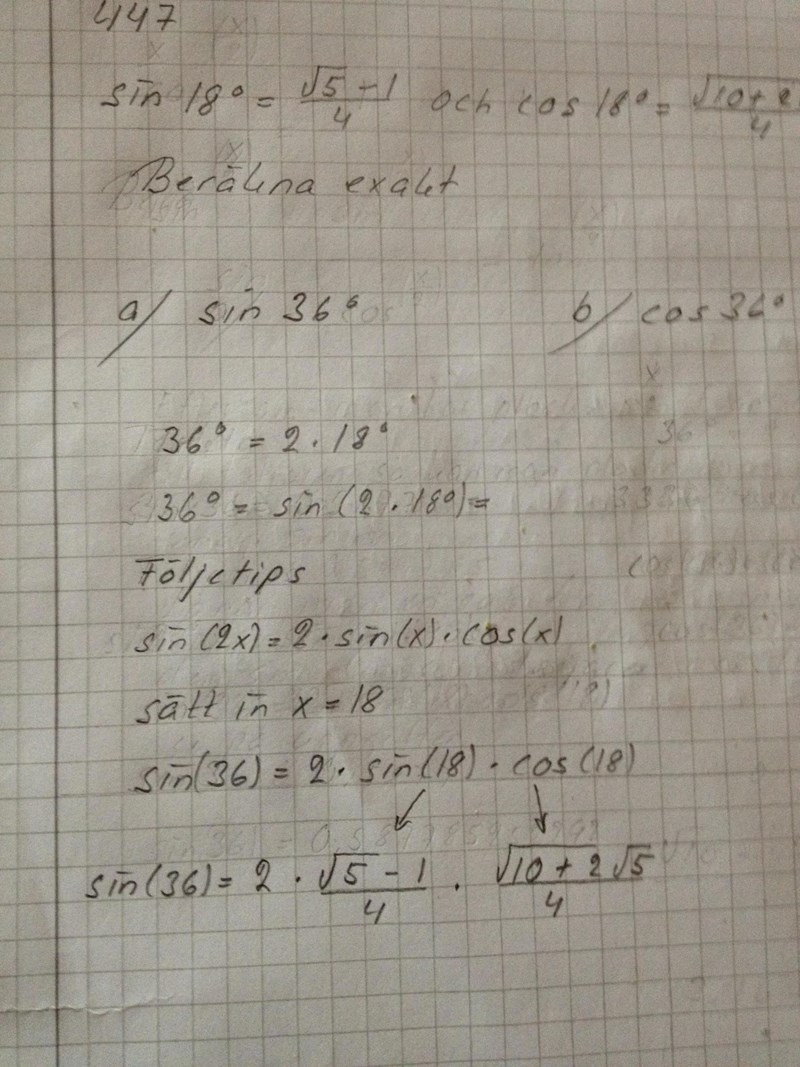 447
sin 18° = (√5 - 1)/4 och cos 18° = √10 + 2/4
Beräkna exakt
a/ sin 36° b/ cos 36°
36° = 2 · 18°
36° = sin (2 · 18°) =
Följetips
sin (2x) = 2 · sin(x) · cos(x)
sätt in x = 18
sin(36) = 2 · sin(18) · cos(18)
sin(36) = 2 · (√5 - 1)/4 · √(10 + 2√5)/4